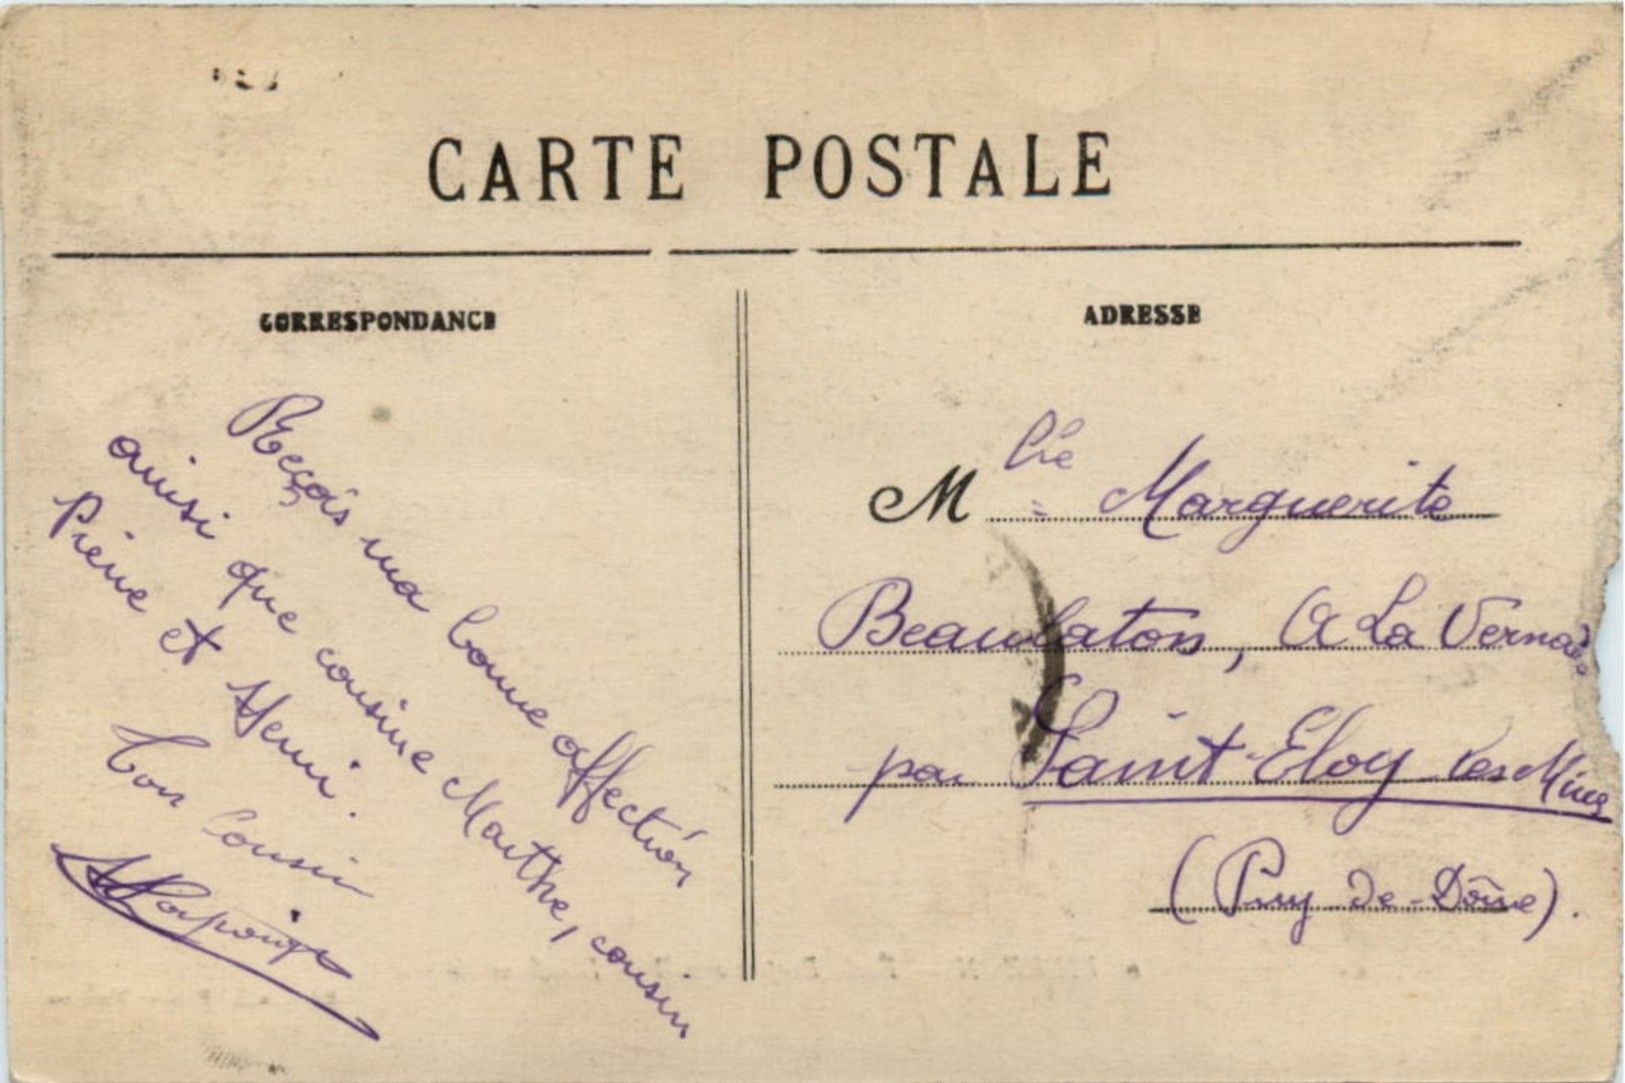 CARTE POSTALE
CORRESPONDANCE
Reçois ma bonne affection
ainsi que cousine Marthe, cousin
Pierre et Henri.
Ton Cousin
ADRESSE
Mlle Marguerite
Beaulaton, A La Vernade
par Saint-Eloy les Mines
(Puy-de-Dôme).